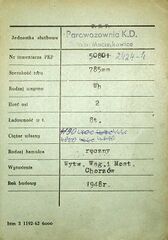 P. K. P.
Jednostka służbowa
Parowozownia K.D.
Nr inwentarza PKP 5080+ 2424-4
Szerokość toru 785mm
Rodzaj wagonu Wh
Ilość osi 2
Ładowność w t. 8t.
Ciężar własny
Rodzaj hamulca ręczny
Wytwórnia Wytw. Wag.i Most. Chorzów
Rok budowy 1948r.